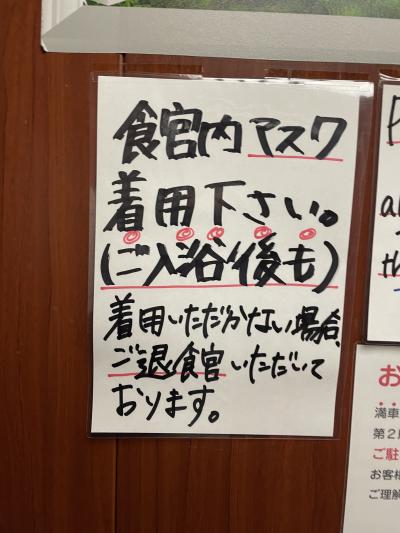 館内マスク
着用下さい。
(ご入浴後も)
着用いただかない場合、
ご退館いただいて
おります。
お
満車
第2
ご駐
お客様
ご理解